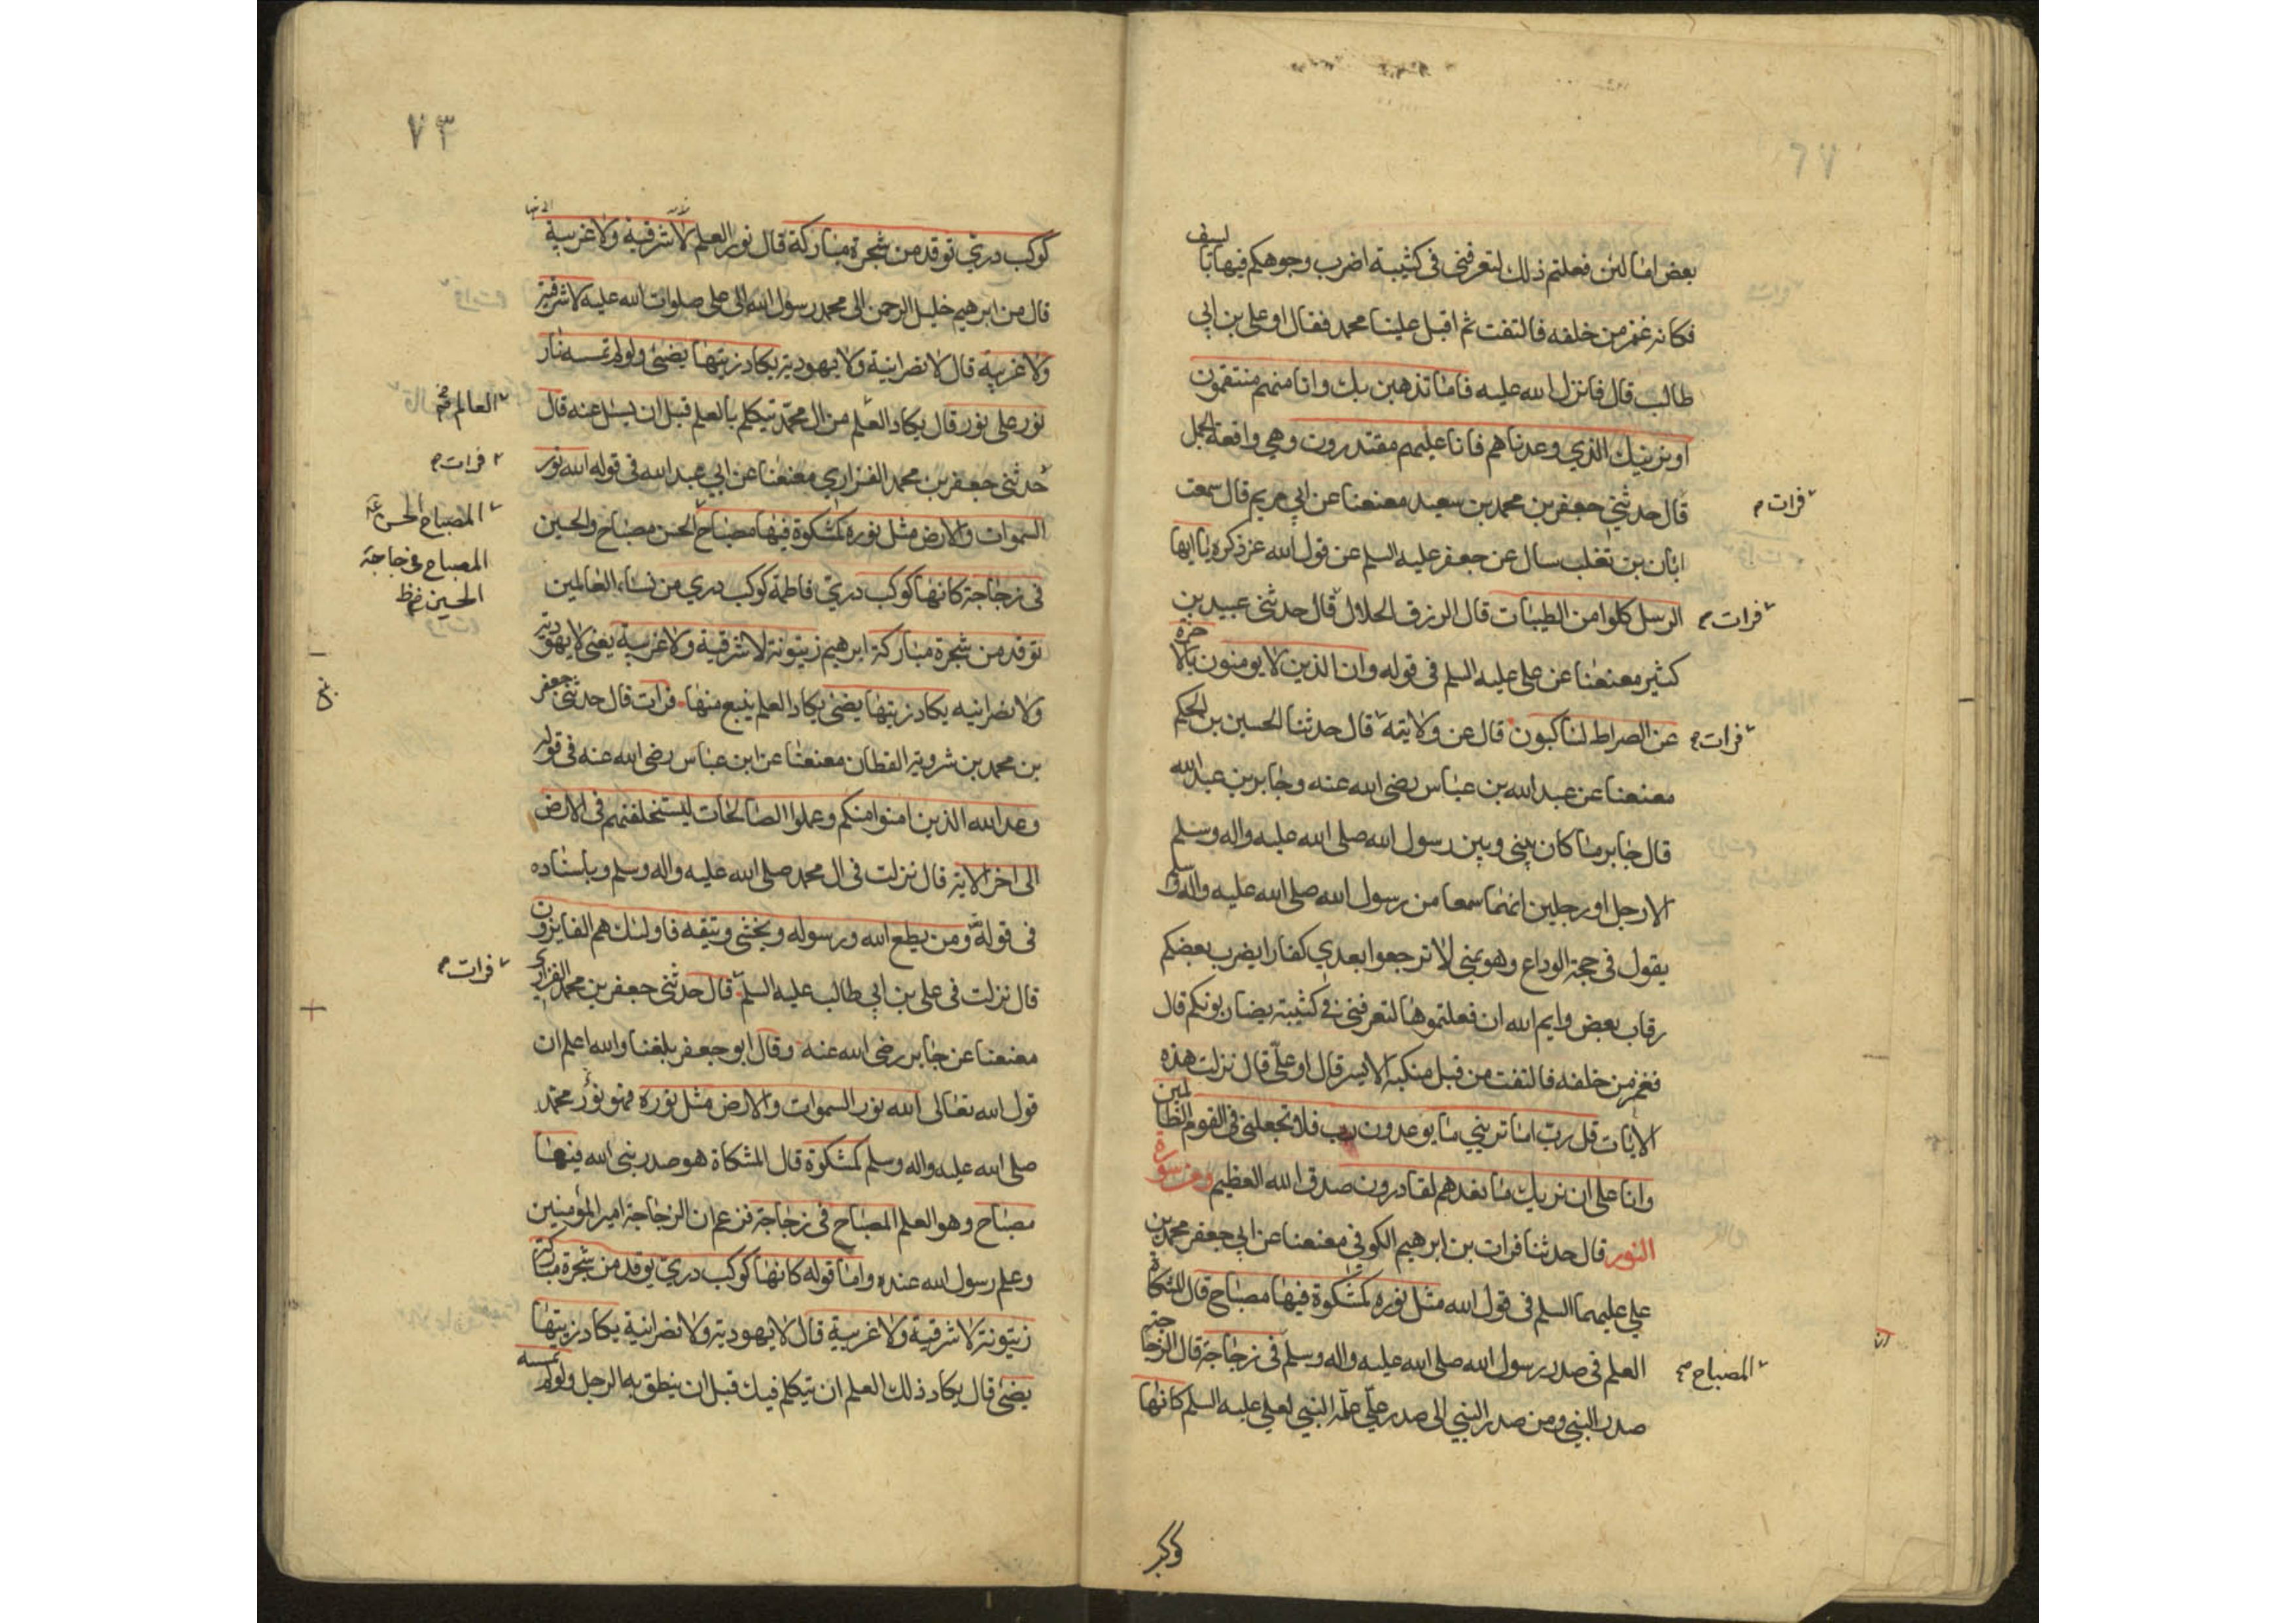 ٦٧
بعض اما لئن فعلتم ذلك لتعرفنى فى كثيبة اضرب وجوهكم فيها بالسيف
فكانه غمز من خلفه فالتفت ثم اقبل علينا محمد فقال او على بن ابى
طالب قال فانزل الله عليه فاما تذهبن بك وانا منهم منتقمون
او نرينك الذي وعدناهم فانا عليهم مقتدرون وهي واقعة الجمل
قال حدثني جعفر بن محمد بن سعيد معنعنا عن ابي مريم قال سمعت
فرات م
ابان بن تغلب سال عن جعفر عليه السلم عن قول الله عز ذكره يا ايها
الرسل كلوا من الطيبات قال الرزق الحلال قال حدثنى عبيد بن
فرات م
كثير معنعنا عن على عليه السلم فى قوله وان الذين لا يومنون بالاخرة
عن الصراط لناكبون قال عن ولايته قال حدثنا الحسين بن الحكم
فرات م
معنعنا عن عبد الله بن عباس رضى الله عنه وجابر بن عبد الله
قال جابر ما كان بينى وبين رسول الله صلى الله عليه واله وسلم
الا رجل او رجلين انهما سمعا من رسول الله صلى الله عليه واله وسلم
يقول فى حجة الوداع وهو بمنى لا ترجعوا بعدي كفارا يضرب بعضكم
رقاب بعض وايم الله ان فعلتموها لتعرفنى فى كثيبة يضاربونكم قال
فغمز من خلفه فالتفت من قبل منكبه الايسر قال او على قال نزلت هذه
الايات قل رب اما ترينى ما يوعدون رب فلا تجعلنى فى القوم الظالمين
وانا على ان نريك ما نعدهم لقادرون صدق الله العظيم ومن سورة
النور قال حدثنا فرات بن ابرهيم الكوفي معنعنا عن ابى جعفر محمد بن
علي عليهما السلم فى قول الله مثل نوره كمشكوة فيها مصباح قال المشكاة
العلم فى صدر رسول الله صلى الله عليه واله وسلم فى زجاجة قال الزجاجة
المصباح
صدر النبي ومن صدر النبي الى صدر علي علمه النبي لعلي عليه السلم كانها
كوكب
٧٣
كوكب دري توقد من شجرة مباركة قال نور العلم لا شرقية ولا غربية
قال من ابرهيم خليل الرحمن الى محمد رسول الله الى على صلوات الله عليه لا شرقية
ولا غربية قال لا نصرانية ولا يهودية يكاد زيتها يضئ ولو لم تمسسه نار
نور على نور قال يكاد العلم من ال محمد يتكلم بالعلم قبل ان يسئل عنه قال
العالم
حدثنى جعفر بن محمد الفزاري معنعنا عن ابي عبد الله فى قوله الله نور
فرات م
السموات والارض مثل نوره كمشكوة فيها مصباح الحسن مصباح والحسين
المصباح الحسن
المصباح فى زجاجة
الحسين
فى زجاجة كانها كوكب دري فاطمة كوكب دري من نساء العالمين
توقد من شجرة مباركة ابرهيم زيتونة لا شرقية ولا غربية يعنى لا يهودية
ولا نصرانيه يكاد زيتها يضئ يكاد العلم ينبع منها فرات قال حدثنى جعفر
بن محمد بن شروية القطان معنعنا عن ابن عباس رضى الله عنه فى قوله
وعد الله الذين امنوا منكم وعملوا الصالحات ليستخلفنهم فى الارض
الى اخر الاية قال نزلت فى ال محمد صلى الله عليه واله وسلم وباسناده
فى قوله ومن يطع الله ورسوله ويخشى ويتقه فاولئك هم الفايزون
قال نزلت فى على بن ابى طالب عليه السلم قال حدثنى جعفر بن محمد الفزارى
فرات م
معنعنا عن جابر رضى الله عنه وقال ابو جعفر بلغنا والله اعلم ان
قول الله تعالى الله نور السموات والارض مثل نوره فهو نور محمد
صلى الله عليه واله وسلم كمشكوة قال المشكاة هو صدر نبى الله فيها
مصباح وهو العلم المصباح فى زجاجة فزعم ان الزجاجة امير المؤمنين
وعلم رسول الله عنده واما قوله كانها كوكب دري يوقد من شجرة مباركة
زيتونة لا شرقية ولا غربية قال لا يهودية ولا نصرانية يكاد زيتها
يضئ قال يكاد ذلك العلم ان يتكلم فيك قبل ان ينطق به الرجل ولو لم تمسسه